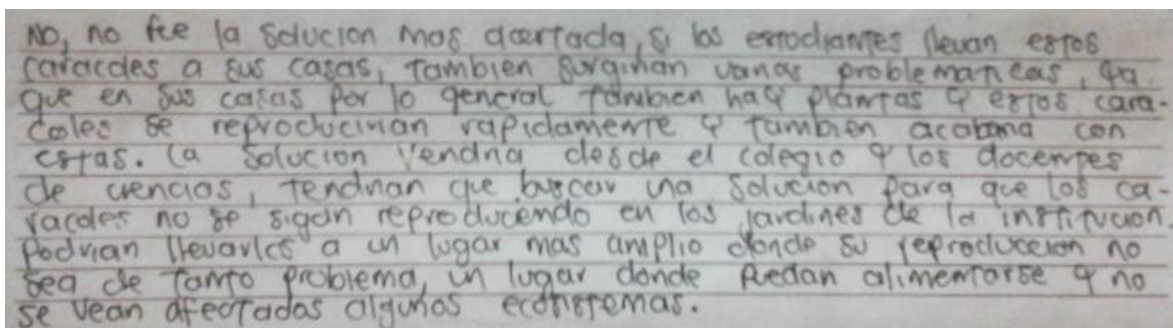 No, no fue la solucion mas acertada, si los estodiantes llevan estos
caracoles a sus casas, tambien surgirian varias problematicas, ya
que en sus casas por lo general tambien hay plantas y estos cara-
coles se reproducirian rapidamente y tambien acabaria con
estas. la solucion vendria desde el colegio y los docentes
de ciencias, tendrian que buscar una solucion para que los ca-
racoles no se sigan reproduciendo en los jardines de la institucion.
Podrian llevarlos a un lugar mas amplio donde su reproduccion no
sea de tanto problema, un lugar donde puedan alimentarse y no
se vean afectados algunos ecosistemas.